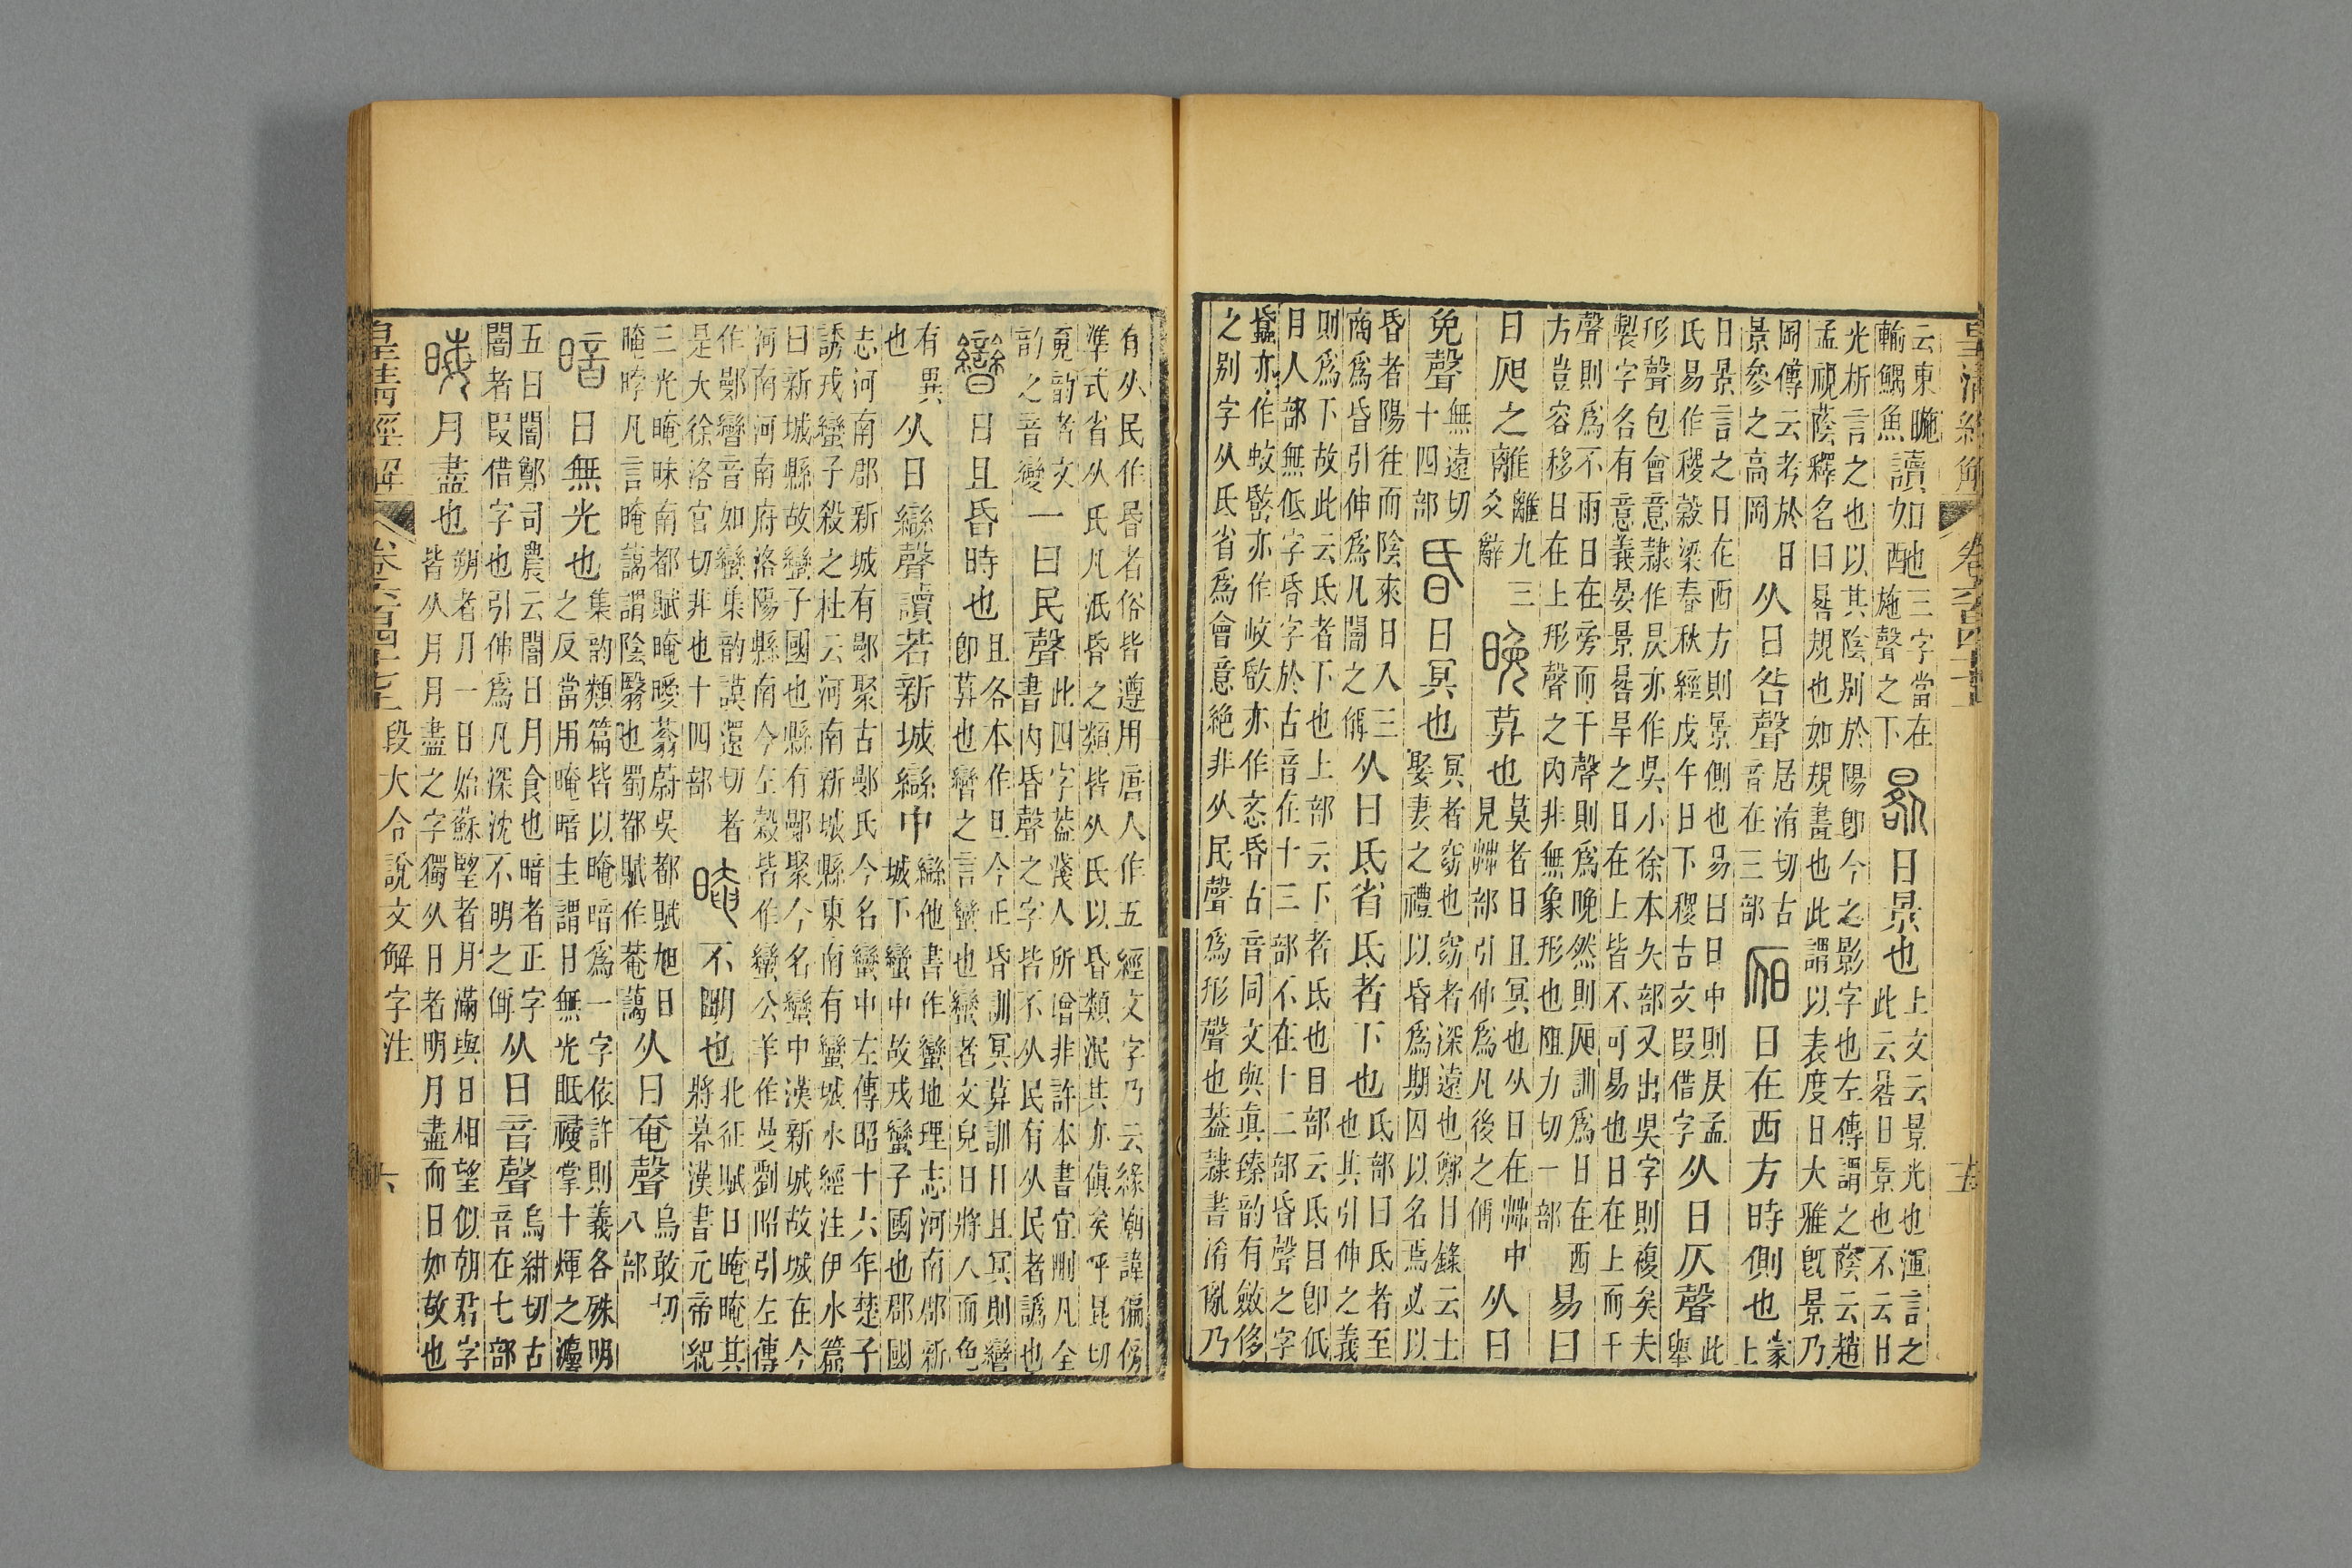 皇清經解 卷六百四十七上 五
云東暆
輸鰅魚
讀如酏
三字當在
施聲之下
晷日景也
上文云景光也渾言之
此云晷日景也不云日
光析言之也以其陰別於陽卽今之影字也左傳謂之蔭云趙
孟視蔭釋名曰晷規也如規畫也此謂以表度日大雅旣景乃
岡傳云考於日
景參之高岡
从日咎聲
居洧切古
音在三部
𣅦日在西方時側也
蒙
上
日景言之日在西方則景側也易曰日中則昃孟
氏易作稷穀梁春秋經戊午日下稷古文叚借字
从日仄聲
此
舉
形聲包會意隷作昃亦作吳小徐本矢部又出吳字則複矣夫
製字各有意義晏景晷旱之日在上皆不可易也日在上而干
聲則爲不雨日在旁而干聲則爲晚然則𣅦訓爲日在西
方豈容移日在上形聲之內非無象形也阻力切一部
易曰
日𣅦之離
離九三
爻辭
晚莫也
莫者日且冥也从日在茻中
見茻部引伸爲凡後之偁
从日
免聲
無遠切
十四部
昏日冥也
冥者窈也窈者深遠也鄭目錄云士
娶妻之禮以昏爲期因以名焉必以
昏者陽往而陰來日入三
商爲昏引伸爲凡闇之偁
从日氐省氐者下也
氐部曰氐者至
也其引伸之義
則爲下故此云氐者下也上部云下者氐也目部云氐目卽低
目人部無低字昏字於古音在十三部不在十二部昏聲之字
亦作蚊亦作敃亦作忞昏古音同文與眞臻韵有斂侈
之別字从氐省爲會意絕非从民聲爲形聲也葢隷書淆亂乃
有从民作昬者俗皆遵用唐人作五經文字乃云緣廟諱偏傍
準式省从氏凡泯昬之類皆从氏以昏類泯其亦傎矣呼昆切
覍韵者文
韵之音變
一曰民聲
此四字葢淺人所增非許本書宜刪凡全
書內昏聲之字皆不从民有从民者譌也
曫日且昏時也
且各本作旦今正昏訓冥莫訓日且冥則曫
卽莫也曫之言蠻也蠻者文皃日將入而色
有異
也
从日䜌聲讀若新城䜌中
䜌他書作蠻地理志河南郡新
城下蠻中故戎蠻子國也郡國
志河南郡新城有鄤聚古鄤氏今名蠻中左傳昭十六年楚子
誘戎蠻子殺之杜云河南新城縣東南有蠻城水經注伊水篇
曰新城縣故蠻子國也縣有鄤聚今名蠻中漢新城故城在今
河南河南府洛陽縣南今左穀皆作蠻公羊作曼劉昭引左傳
作鄤曫音如蠻集韵謨還切者
是大徐洛官切非也十四部
晻不朙也
北征賦日晻晻其
將暮漢書元帝紀
三光晻昧南都賦晻曖蓊蔚吳都賦旭日
晻㫲凡言晻藹謂陰翳也蜀都賦作菴藹
从日奄聲
烏敢切
八部
暗日無光也
集韵類篇皆以晻暗爲一字依許則義各殊明
之反當用晻暗主謂日無光眡祲掌十煇之灋
五曰闇鄭司農云闇日月食也暗者正字
闇者叚借字也引伸爲凡深沈不明之偁
从日音聲
烏紺切古
音在七部
晦月盡也
朔者月一日始蘇朢者月滿與日相望似朝君字
皆从月月盡之字獨从日者明月盡而日如故也
皇清經解 卷六百四十七上 段大令說文解字注 六